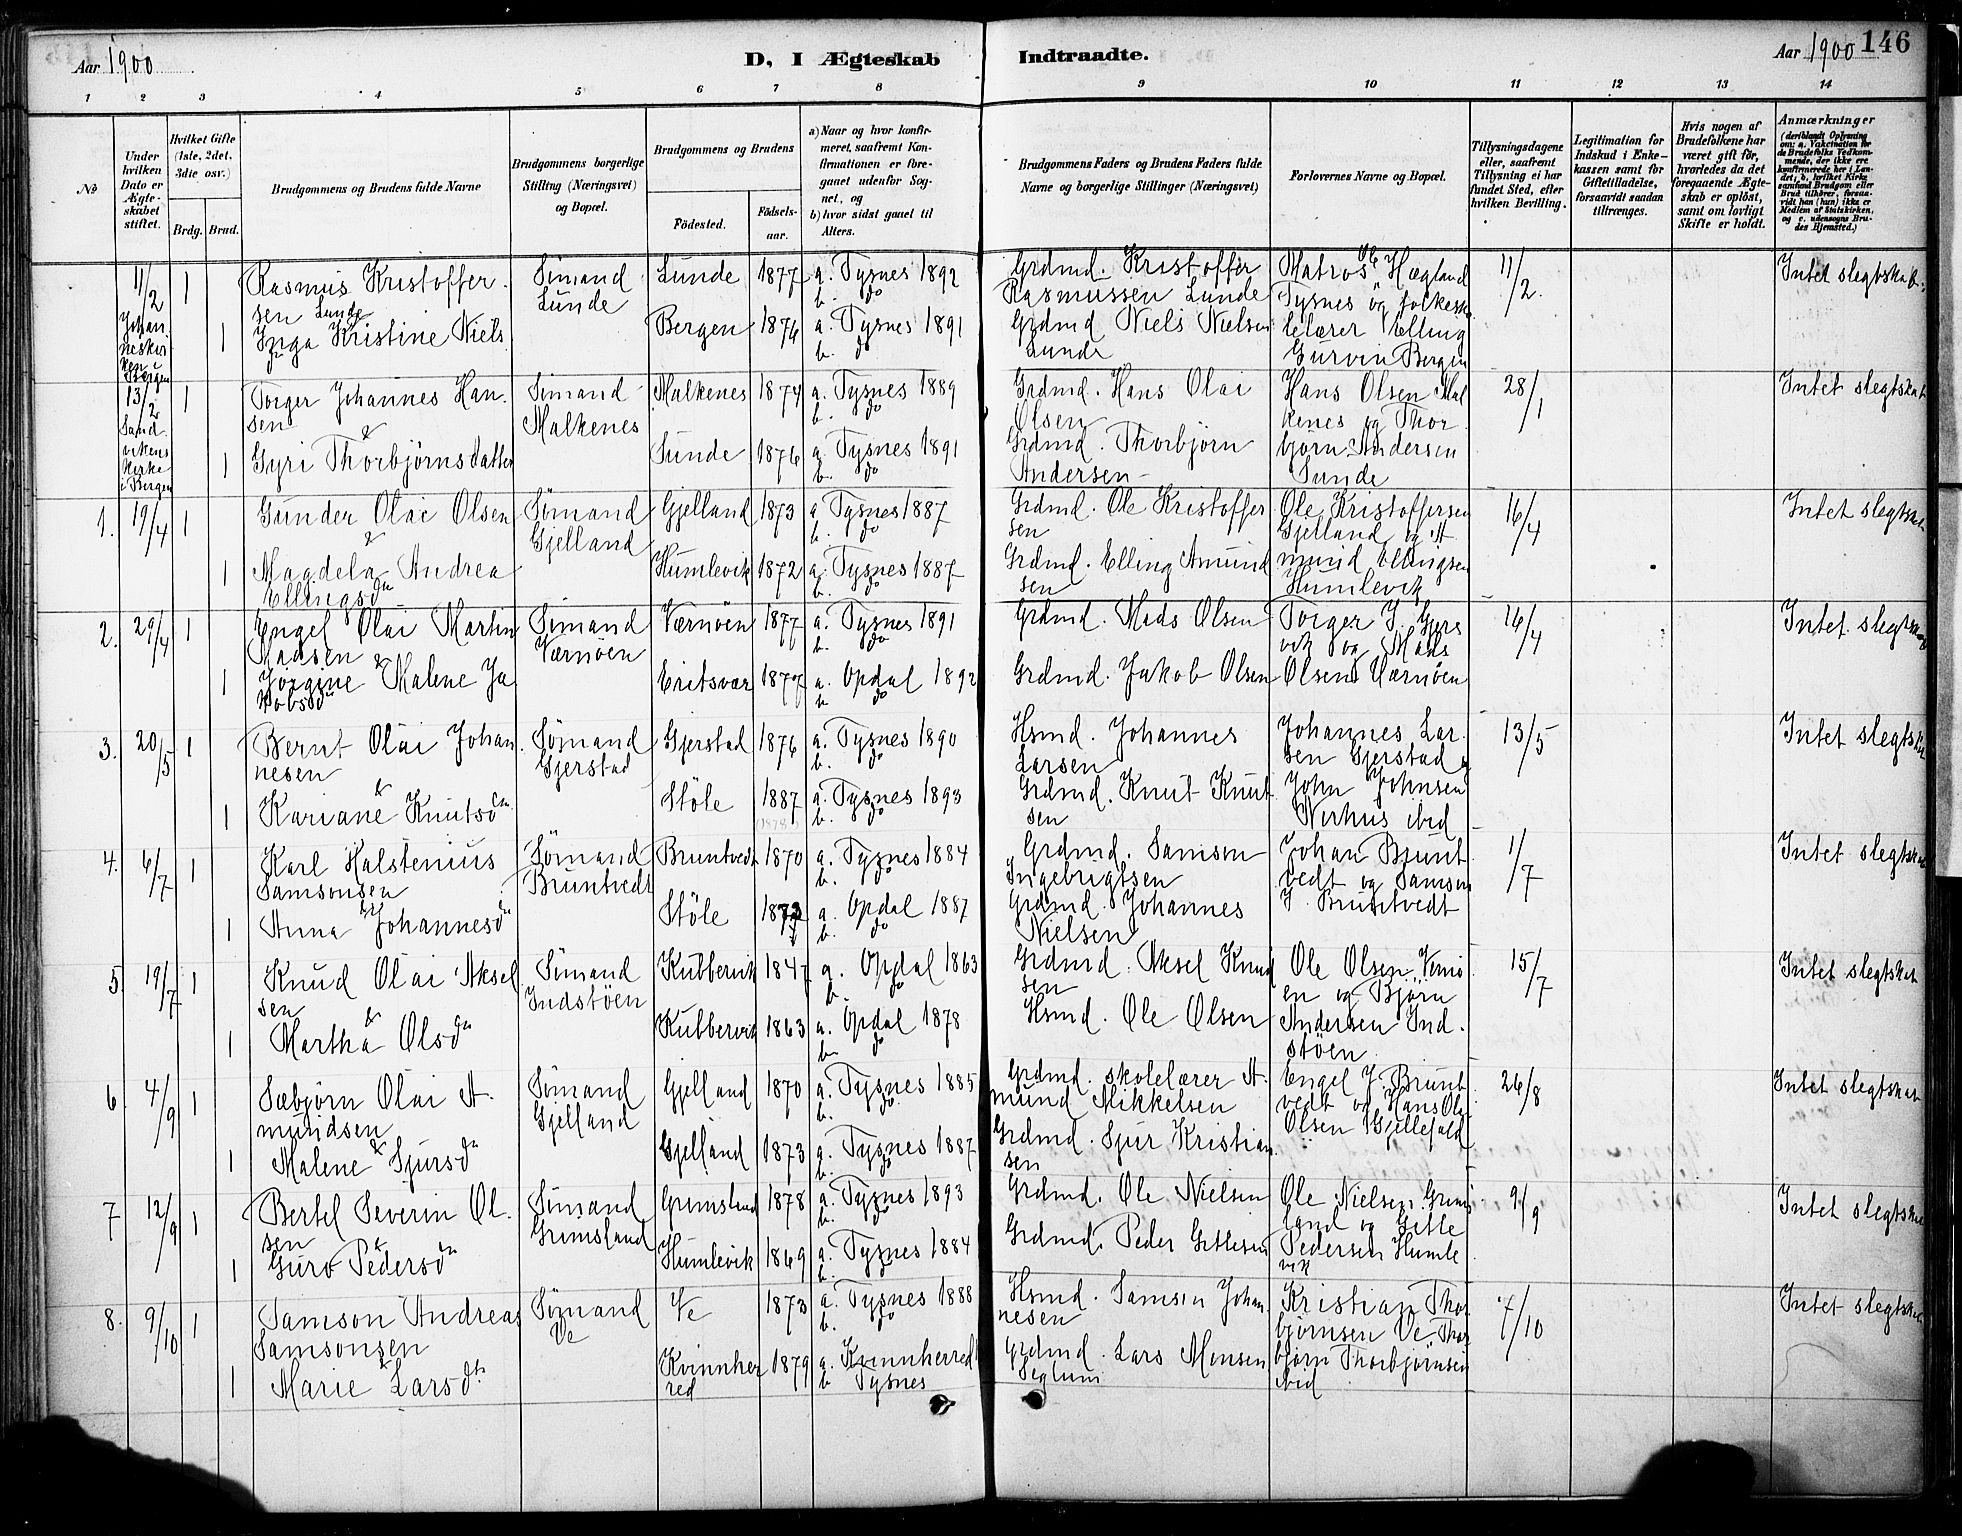 Aar 1900
D, I Ægteskab Indtraadte.
Aar 1900 146
1 2 3 4 5 6 7 8 9 10 11 12 13 14
No
Under hvilken Dato er Ægteskabet stiftet.
Hvilket Gifte (1ste, 2det, 3die osv.)
Brdg. Brud.
Brudgommens og Brudens fulde Navne
Brudgommens borgerlige Stilling (Næringsvei) og Bopæl.
Brudgommens og Brudens
Födested. Födselsaar.
a) Naar og hvor konfirmeret, saafremt Konfirmationen er foregaaet udenfor Sognet, og
b) hvor sidst gaaet til Alters.
Brudgommens Faders og Brudens Faders fulde Navne og borgerlige Stillinger (Næringsvei)
Forlovernes Navne og Bopæl.
Tillysningsdagene eller, saafremt Tillysning ei har fundet Sted, efter hvilken Bevilling.
Legitimation for Indskud i Enkekassen samt for Giftetilladelse, forsaavidt saadan tiltrænges.
Hvis nogen af Brudefolkene har været gift för, hvorledes da det foregaaende Ægteskab er oplöst, samt om lovligt Skifte er holdt.
Anmærkninger
(deriblandt Oplysning om: a. Vakcination for de Brudefolks Vedkommende, der ikke ere konfirmerede her i Landet; b. hvilket Kirkesamfund Brudgom eller Brud tilhörer, forsaavidt han (hun) ikke er Medlem af Statskirken, og c. udensogns Brudes Hjemsted.)
11/2 1 Rasmus Kristoffer Sömand Lunde 1877 a. Tysnes 1892 Grdmd. Kristoffer Matros Ole Hægland 11/2. Intet slegtskab
sen Lunde Lunde b. do Rasmussen Lunde Tysnes og folkesko
Johanneskirken i Bergen 1 Inga Kristine Niels Bergen 1876 a. Tysnes 1891 Grdmd Niels Nielsen lelærer Elling
b. do Lunde Gurvin Bergen
13/2 1 Torger Johannes Han Sömand Malkenes 1874 a. Tysnes 1889 Grdmd. Hans Olai Hans Olsen Mal 28/1 Intet slegtskab
Sandvikens Kirke i Bergen sen & Malkenes b. do Olsen kenes og Thor
1 Gyri Thorbjörnsdatter Sunde 1876 a. Tysnes 1891 Grdmd. Thorbjörn björn Andersen
b. do Andersen Sunde
1. 19/4 1 Gunder Olai Olsen Sömand Gjelland 1873 a Tysnes 1887 Grdmd. Ole Kristoffer Ole Kristoffersen 16/4 Intet slegtskab
& Gjelland b. do sen Gjelland og A
1 Magdela Andrea Humlevik 1872 a. Tysnes 1887 Grdmd. Elling Amund mund Ellingsen
Ellingsdtr b. do sen Humlevik
2. 29/4 1 Engel Olai Martin Sömand Værnöen 1877 a. Tysnes 1891 Grdmd. Mads Olsen Torger J. Gjers 16/4 Intet slegtskab
Madsen & Værnöen b. do vik og Mads
1 Jörgine Malene Ja Eritsvær 1877 a. Opdal 1892 Grdmd. Jakob Olsen Olsen Værnöen
kobsd b do
3. 20/5 1 Bernt Olai Johan Sömand Gjerstad 1876 a. Tysnes 1890 Hsmd. Johannes Johannes Lar 13/5 Intet slegtskab
nesen & Gjerstad b. do Larsen sen Gjerstad
1 Kariane Knutsdtr Stöle 1887 a. Tysnes 1893 Grdmd. Knut Knut John Johnsen
b. do sen Nerhus ibid
4. 6/7 1 Karl Halstenius Sömand Bruntvedt 1870 a. Tysnes 1884 Grdmd. Samson Johan Brunt 1/7 Intet slegtskab
Samsonsen Bruntvedt b. do Ingebrigtsen vedt og Samson
1 Anna Johannesd Stöle a. Opdal 1887 Grdmd. Johannes J. Bruntvedt
b. do Nielsen
5. 19/7 1 Knud Olai Aksel Sömand Kubbervik 1847 a. Opdal 1863 Grdmd. Aksel Knud Ole Olsen 15/7 Intet slegtskab
sen & Indstöen b. do sen en og Björn
1 Martha Olsdtr Kubbervik 1863 a. Opdal 1878 Hsmd. Ole Olsen Andersen Ind
b. do stöen
6. 4/9 1 Sæbjörn Olai A Sömand Gjelland 1870 a. Tysnes 1885 Grdmd. skolelærer A Engel J. Brunt 26/8 Intet slegtskab
mundsen & Gjelland b. do mund Mikkelsen vedt og Hans
1 Malene Sjursdtr Gjelland 1873 a. Tysnes 1887 Grdmd. Sjur Kristian Olsen
b. do sen
7 12/9 1 Bertel Severin Ol Sömand Grimsland 1878 a. Tysnes 1893 Grdmd. Ole Nielsen Ole Nielsen Grims 9/9 Intet slegtskab
sen & Grimsland b. do land og Gitle
1 Guro Pedersdtr Humlevik 1869 a. Tysnes 1884 Grdmd. Peder Gitlesen Pedersen Humle
b. vik
8. 9/10 1 Samson Andreas Sömand Ve 1873 a. Tysnes 1888 Hsmd. Samson Johan Kristian Thor 7/10 Intet slegtskab
Samsonsen Ve b. do nesen björnsen Ve, Thor
1 Marie & Larsdtr Kvinnher 1879 a. Kvinnherred Grdmd. Lars Monsen björn Thorbjörnsen
red b Tysnes Seglum ibid